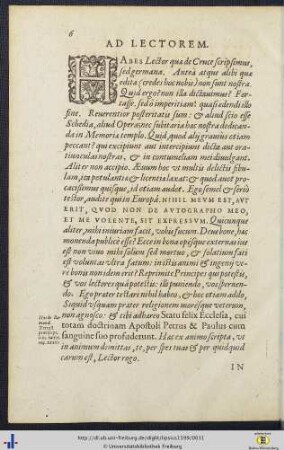 6
AD LECTOREM.
HABES Lector quæ de Cruce scripsimus,
sed germana. Anteà atque alibi quæ
edita (credes hoc nobis) non sunt nostra.
Quid ergo? non illa dictauimus? For-
tasse. sed ô imperitiam! quasi edendi illo
fine. Reuerentior posteritatis sum: & aliud scio esse
Schedia, aliud Opera:
in Memoria templo. Quid, quod alij grauius etiam
peccant? qui excipiunt aut intercipiunt dicta aut ora-
tiunculas nostras, & in contumeliam mei diuulgant.
Aliter non accipio. Æuum hoc vt multis delictis fibu-
lam, ita petulantiæ & licentiæ laxat: & quod aunt pro-
cacissimus quisque, id etiam audet. Ego semel & seriò
testor, audite qui in Europâ. NIHIL MEVM EST, AVT
ERIT, QVOD NON DE AVTOGRAPHO MEO,
ET ME VOLENTE, SIT EXPRESSVM. Quicunque
aliter, mihi iniuriam facit, vobis fucum. Deus bone, hæc
monenda publicè esse? Ecce in bona
est non viuo mihi solùm sed mortuo, & solatium fati
est voluntas vltra fatum: in istis animi & ingenij ve-
rè bonis non idem erit? Reprimite Principes qui potestis,
& vos lectores quà potestis: illi puniendo, vos spernen-
do. Ego præter testari nihil habeo, & hoc etiam addo,
Sequid vsquam præter religionem moresque veterum,
non agnosco: & tibi adhæreo Statu felix Ecclesia, cui
totam doctrinam Apostoli Petrus & Paulus cum
sanguine suo profuderunt. Hæc ex animo scripta, vt
in animum demittas, te, per spes tuas & per quidquid
carum est, Lector rogo.
IN
http://dl.ub.uni-freiburg.de/diglit/lipsius1599/0011
© Universitätsbibliothek Freiburg